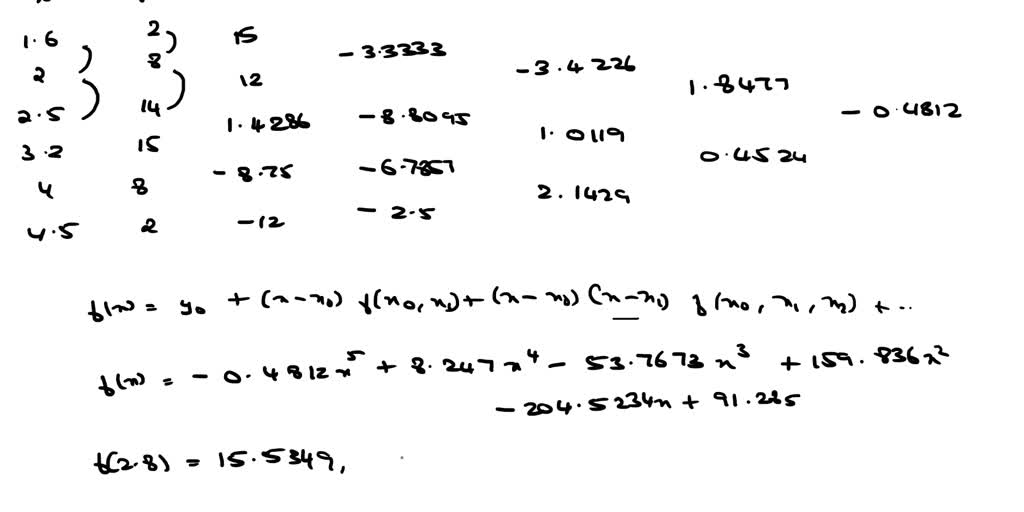 1.6 2 15 -3.3333 -3.4226 1.8477 -0.4812
2 8 12 -8.8095 1.0119 0.4524
2.5 14 1.4286 -6.7857 2.1429
3.2 15 -8.75 -2.5
4 8 -12
4.5 2
f(x) = y0 + (x-x0) f(x0, x1) + (x-x0) (x-x1) f(x0, x1, x2) + ..
f(x) = -0.4812x^5 + 8.247x^4 - 53.7673x^3 + 159.836x^2
- 204.5234x + 91.285
f(2.8) = 15.5349,